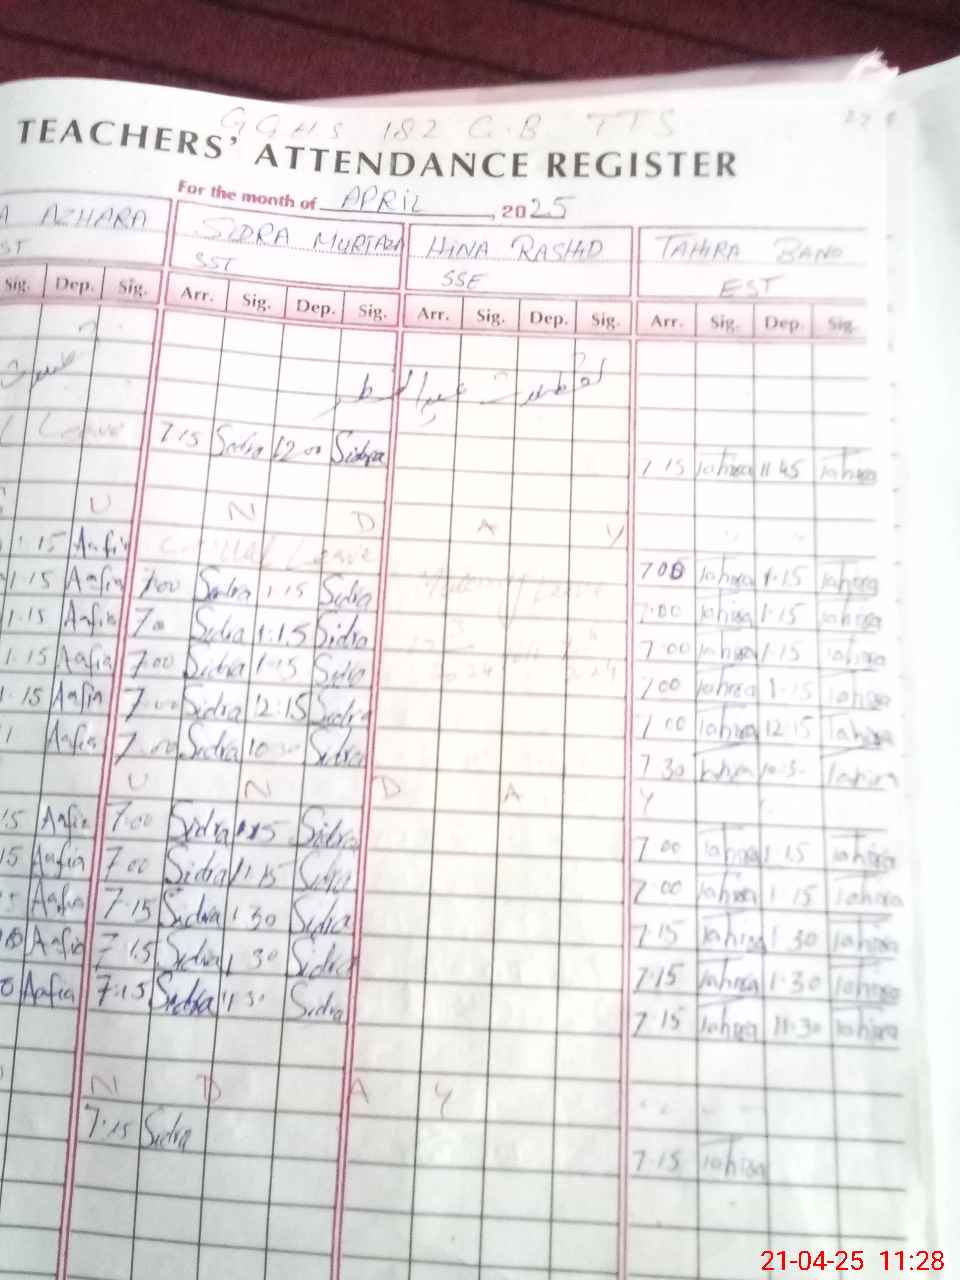 GGHS 182 G.B TTS
TEACHERS' ATTENDANCE REGISTER
For the month of APRIL, 2025
AZHARA SIDRA MURTAZA HINA RASHID TAHIRA BANO
SST SSE EST
Sig. Dep. Sig. Arr. Sig. Dep. Sig. Arr. Sig. Dep. Sig. Arr. Sig. Dep. Sig.
تعطیلات عیدالفطر
Leave 7:15 Sidra 12:00 Sidra 7:15 Tahira 11:45 Tahira
U N D A Y
1:15 Aafia Leave 7:00 Tahira 1:15 Tahira
1:15 Aafia 7:00 Sidra 1:15 Sidra Maternity Leave 7:00 Tahira 1:15 Tahira
1:15 Aafia 7:00 Sidra 1:15 Sidra 7:00 Tahira 1:15 Tahira
1:15 Aafia 7:00 Sidra 1:15 Sidra 7:00 Tahira 1:15 Tahira
1:15 Aafia 7:00 Sidra 12:15 Sidra 7:00 Tahira 12:15 Tahira
Aafia 7:00 Sidra 10:30 Sidra 7:30 Tahira 10:30 Tahira
U N D A Y
15 Aafia 7:00 Sidra 1:15 Sidra 7:00 Tahira 1:15 Tahira
15 Aafia 7:00 Sidra 1:15 Sidra 7:00 Tahira 1:15 Tahira
Aafia 7:15 Sidra 1:30 Sidra 7:15 Tahira 1:30 Tahira
Aafia 7:15 Sidra 1:30 Sidra 7:15 Tahira 1:30 Tahira
Aafia 7:15 Sidra 11:30 Sidra 7:15 Tahira 11:30 Tahira
N D A Y
7:15 Sidra 7:15 Tahira
21-04-25 11:28